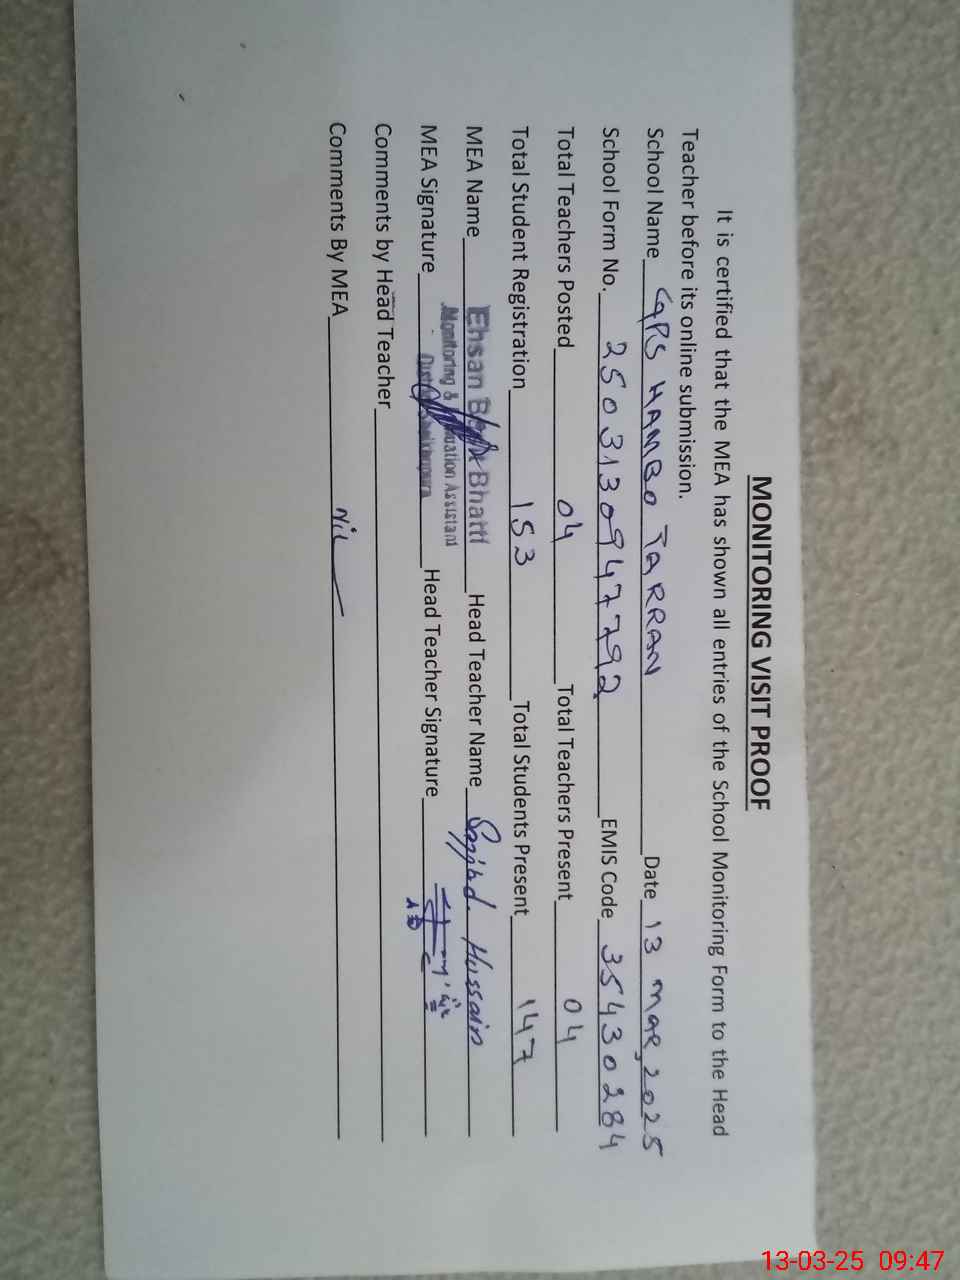 MONITORING VISIT PROOF
It is certified that the MEA has shown all entries of the School Monitoring Form to the Head
Teacher before its online submission.
School Name GPS HAMBO TARRAN Date 13 MAR, 2025
School Form No. 2503130947792 EMIS Code 35430284
Total Teachers Posted 04 Total Teachers Present 04
Total Student Registration 153 Total Students Present 147
MEA Name Ehsan Bhatti Head Teacher Name Sajjad Hussain
Monitoring & Evaluation Assistant
MEA Signature Head Teacher Signature
Comments by Head Teacher
Comments By MEA Nil
13-03-25 09:47